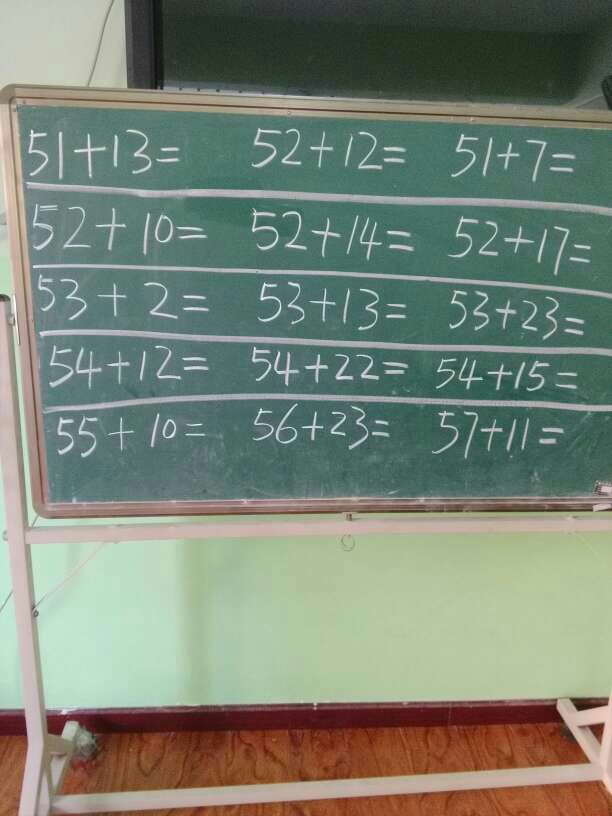 51+13= 52+12= 51+7=
52+10= 52+14= 52+17=
53+2= 53+13= 53+23=
54+12= 54+22= 54+15=
55+10= 56+23= 57+11=